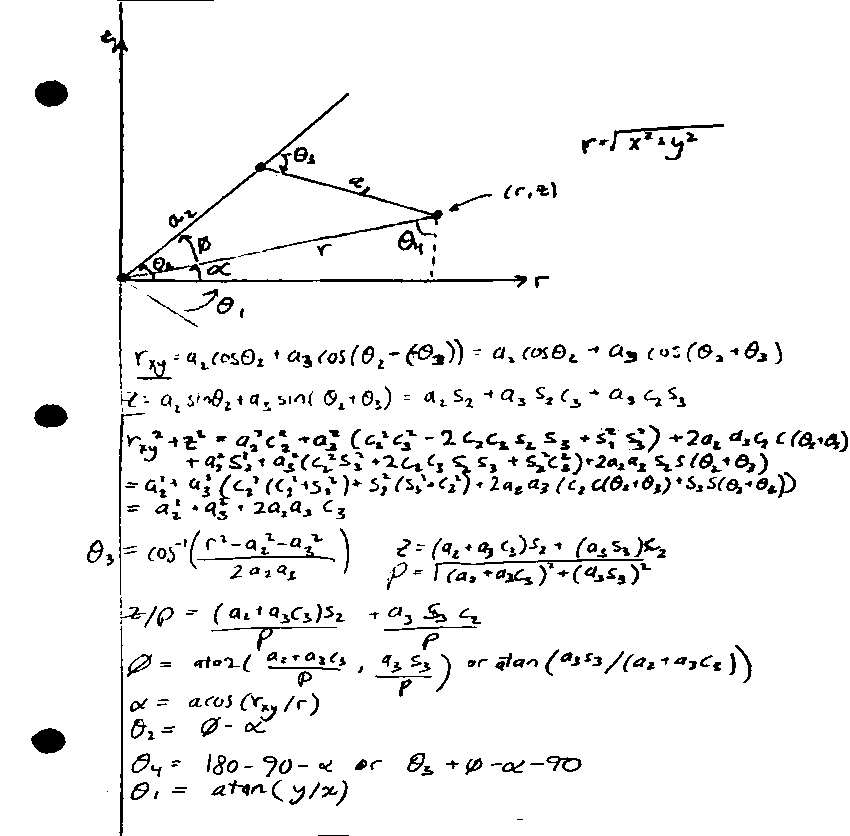 z
θ₃
r=√x²+y²
a₃
(r,z)
a₂
φ
θ₄
θ₂
r
α
r
θ₁
r_xy = a₂cosθ₂ + a₃cos(θ₂-(-θ₃)) = a₂cosθ₂ + a₃cos(θ₂+θ₃)
z = a₂sinθ₂+a₃sin(θ₂+θ₃) = a₂s₂ + a₃s₂c₃ + a₃c₂s₃
r_xy²+z² = a₂²c₂² + a₃²(c₂²c₃² - 2c₂c₃s₂s₃ + s₂²s₃²) + 2a₂a₃c₂c(θ₂+θ₃)
+ a₂²s₂² + a₃²(c₂²s₃² + 2c₂c₃s₂s₃ + s₂²c₃²) + 2a₂a₃s₂s(θ₂+θ₃)
= a₂² + a₃²(c₂²(c₃²+s₃²) + s₂²(s₃²+c₃²) + 2a₂a₃(c₂c(θ₂+θ₃) + s₂s(θ₂+θ₃))
= a₂² + a₃² + 2a₂a₃c₃
θ₃ = cos⁻¹((r²-a₂²-a₃²)/(2a₂a₃))
z = (a₂+a₃c₃)s₂ + (a₃s₃)c₂
ρ = √(a₂+a₃c₃)²+(a₃s₃)²
z/ρ = (a₂+a₃c₃)s₂/ρ + a₃s₃c₂/ρ
φ = atan2((a₂+a₃c₃)/ρ, a₃s₃/ρ) or atan(a₃s₃/(a₂+a₃c₃))
α = acos(r_xy/r)
θ₂ = φ-α
θ₄ = 180-90-α or θ₃+φ-α-90
θ₁ = atan(y/x)